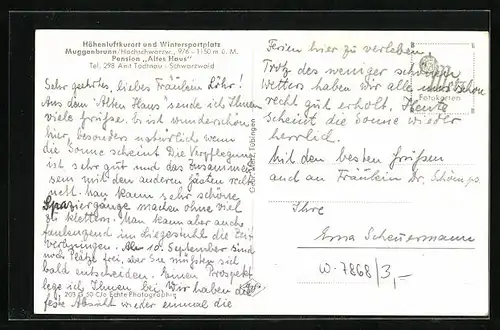 Höhenluftkurort und Wintersportplatz
Muggenbrunn/Hochschwarzw., 976 - 1150 m ü. M.
Pension „Altes Haus"
Tel. 298 Amt Todtnau - Schwarzwald
Sehr geehrtes, liebes Fräulein Löhr!
Aus dem "Alten Haus" sende ich Ihnen
viele Grüsse. Es ist wunderschön
hier, besonders natürlich wenn
die Sonne scheint. Die Verpflegung
ist sehr gut und das Zusammen
sein mit den anderen Gästen recht
nett. Man kann sehr schöne
Spaziergänge machen ohne viel
zu klettern. Man kann aber auch
faulenzend im Liegestuhl die Zeit
verbringen. 10. September sind
noch Plätze frei, aber Sie müssten sich
bald entscheiden. Einen Prospekt
lege ich Ihnen bei. Wir haben die
feste Absicht wieder einmal die
203 G 50 C/o Echte Photographie
Tübingen
Ferien hier zu verleben.
Trotz des weniger schönen
Wetters haben wir alle uns schon
recht gut erholt. Heute
scheint die Sonne wieder
herrlich.
Mit den besten Grüßen
auch an Fräulein Dr. Schöm
Ihre
Erna Scheuermann
Fotokarten
W-7868/3,-